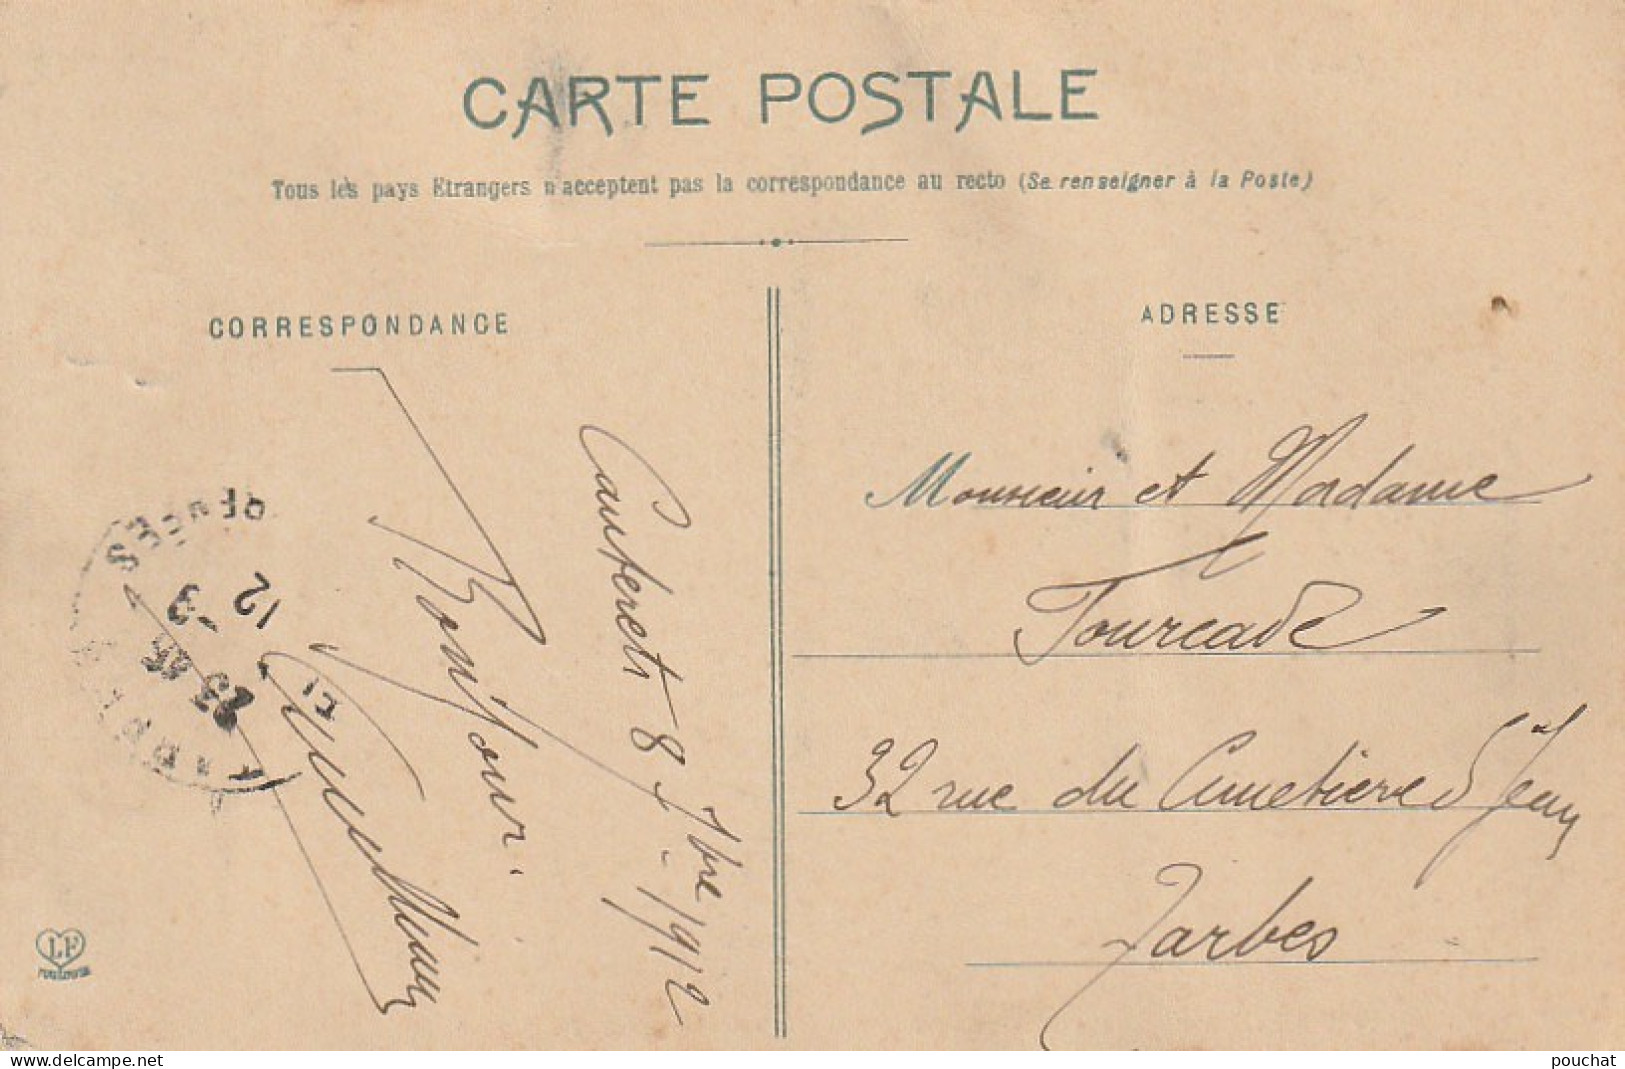 CARTE POSTALE
Tous les pays Etrangers n'acceptent pas la correspondance au recto (Se renseigner à la Poste)
CORRESPONDANCE
ADRESSE
Cauterets 8 7bre 1912
Bonjour.
Monsieur et Madame
Fourcade
32 rue du Cimetière St Jean
Tarbes
TARBES
23 45
-9
12
LF
TOULOUSE
www.delcampe.net
pouchat